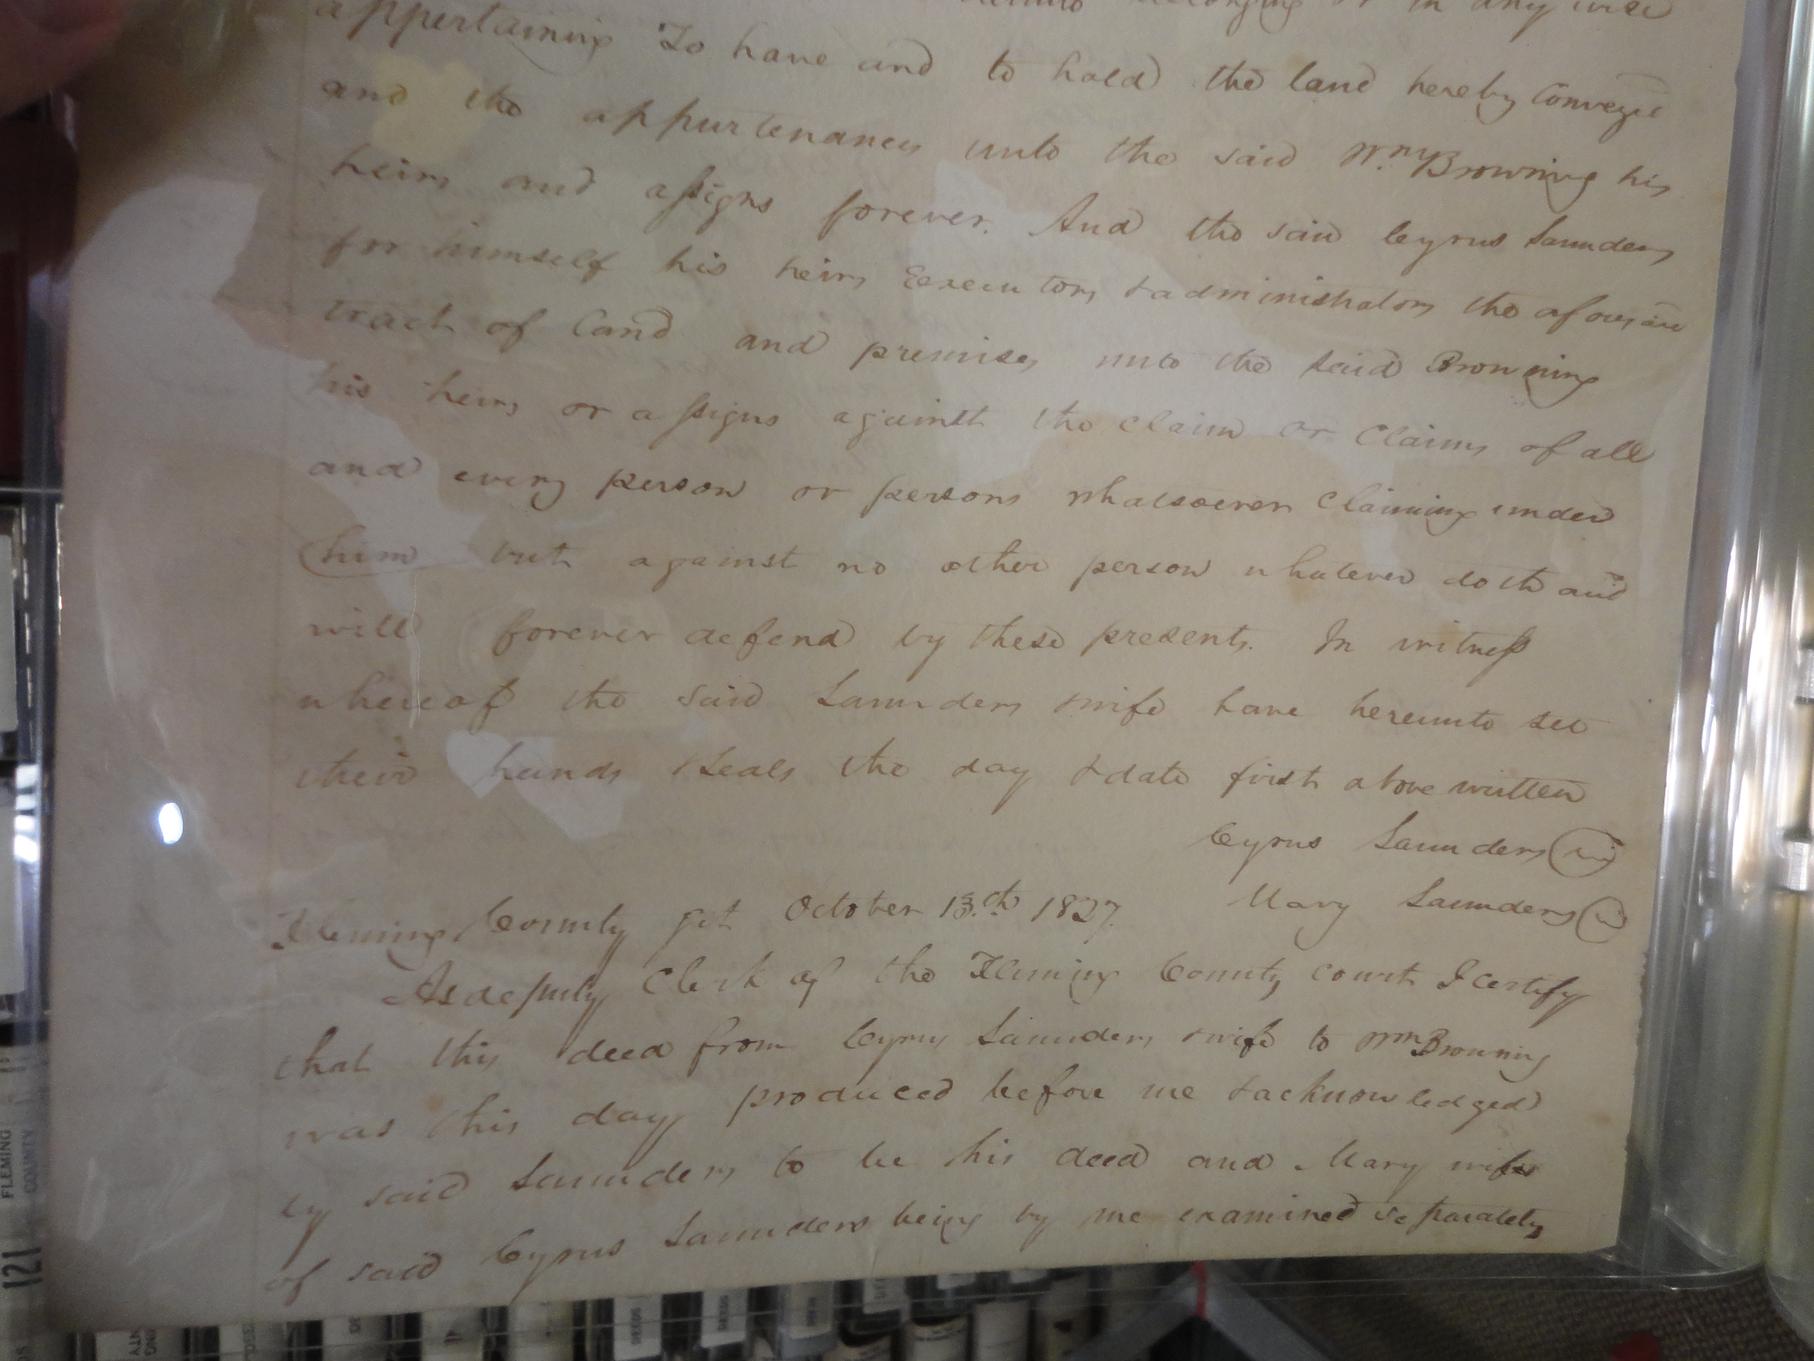 belonging or in any wise
appertaining To have and to hold the land hereby Conveyed
and the appurtenances unto the said Wm Browning his
heirs and assigns forever. And the said Cyrus Saunders
for himself his heirs Executors & administrators the aforesaid
tract of Land and premises unto the said Browning
his heirs or assigns against the claim or Claims of all
and every person or persons whatsoever Claiming under
him but against no other person whatever doth and
will forever defend by these presents. In witness
whereof the said Saunders & wife have hereunto set
their hands & seals the day & date first above written
Cyrus Saunders
Mary Saunders
Fleming County Sct October 13.th 1827.
As deputy Clerk of the Fleming County court I certify
that this deed from Cyrus Saunders & wife to Wm Browning
was this day produced before me & acknowledged
by said Saunders to be his deed and Mary wife
of said Cyrus Saunders being by me examined separately
FLEMING
COUNTY
121